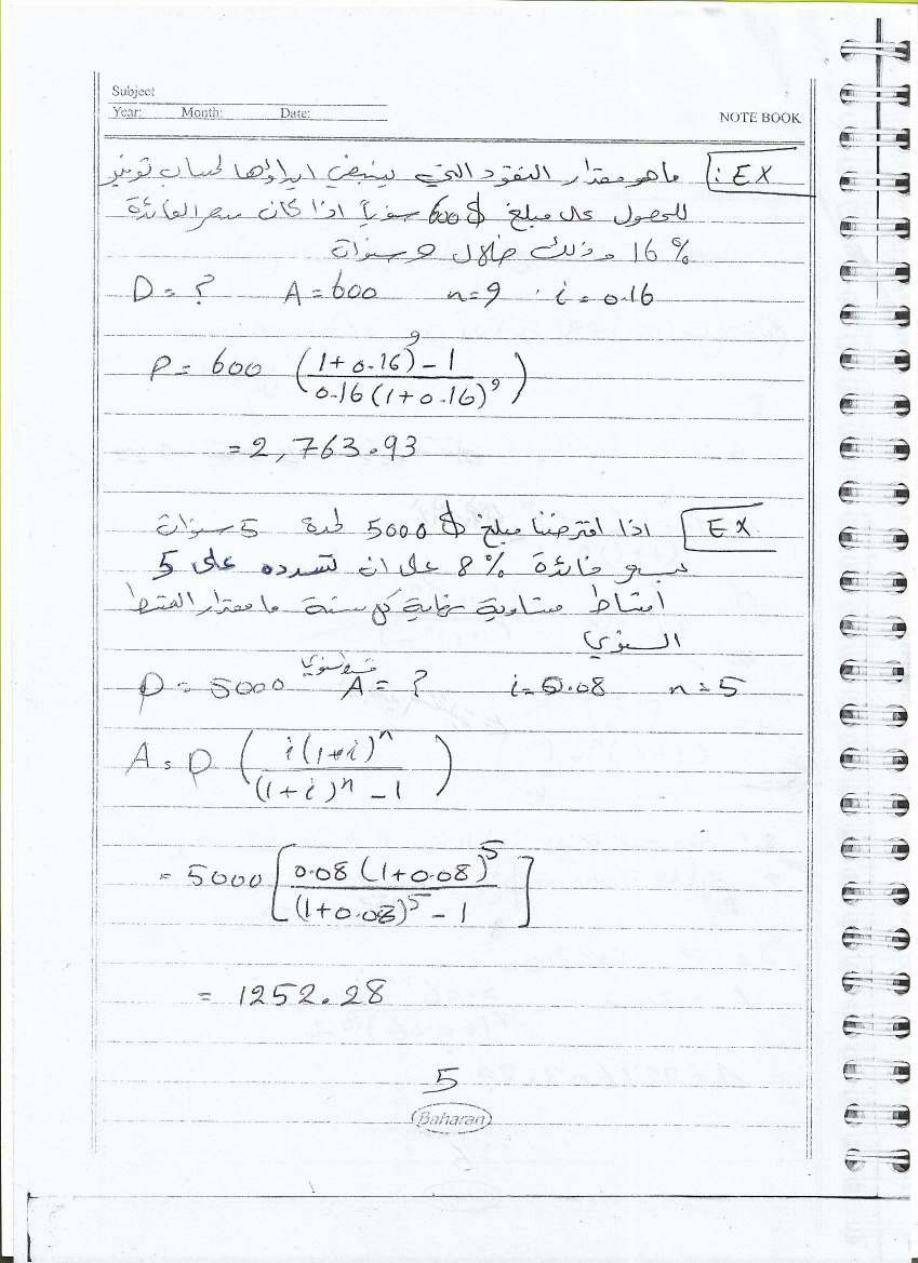 Subject
Year: Month: Date:
NOTE BOOK
EX: ماهو مقدار النقود التي ينبغي ايداعها لحساب توفير
للحصول على مبلغ 600$ سنوياً اذا كان سعر الفائدة
16% وذلك خلال 9 سنوات
P = ? A = 600 n = 9 i = 0.16
P = 600 ( (1+0.16)^9 - 1 / 0.16 (1+0.16)^9 )
= 2,763.93
EX اذا اقترضنا مبلغ 5000$ لمدة 5 سنوات
فائدة 8% على ان تسدده على 5
اقساط متساوية نهاية كل سنة ما مقدار القسط
السنوي
P = 5000 A = ? i = 0.08 n = 5
A = P ( i(1+i)^n / (1+i)^n - 1 )
= 5000 [ 0.08 (1+0.08)^5 / (1+0.08)^5 - 1 ]
= 1252.28
5
Baharan